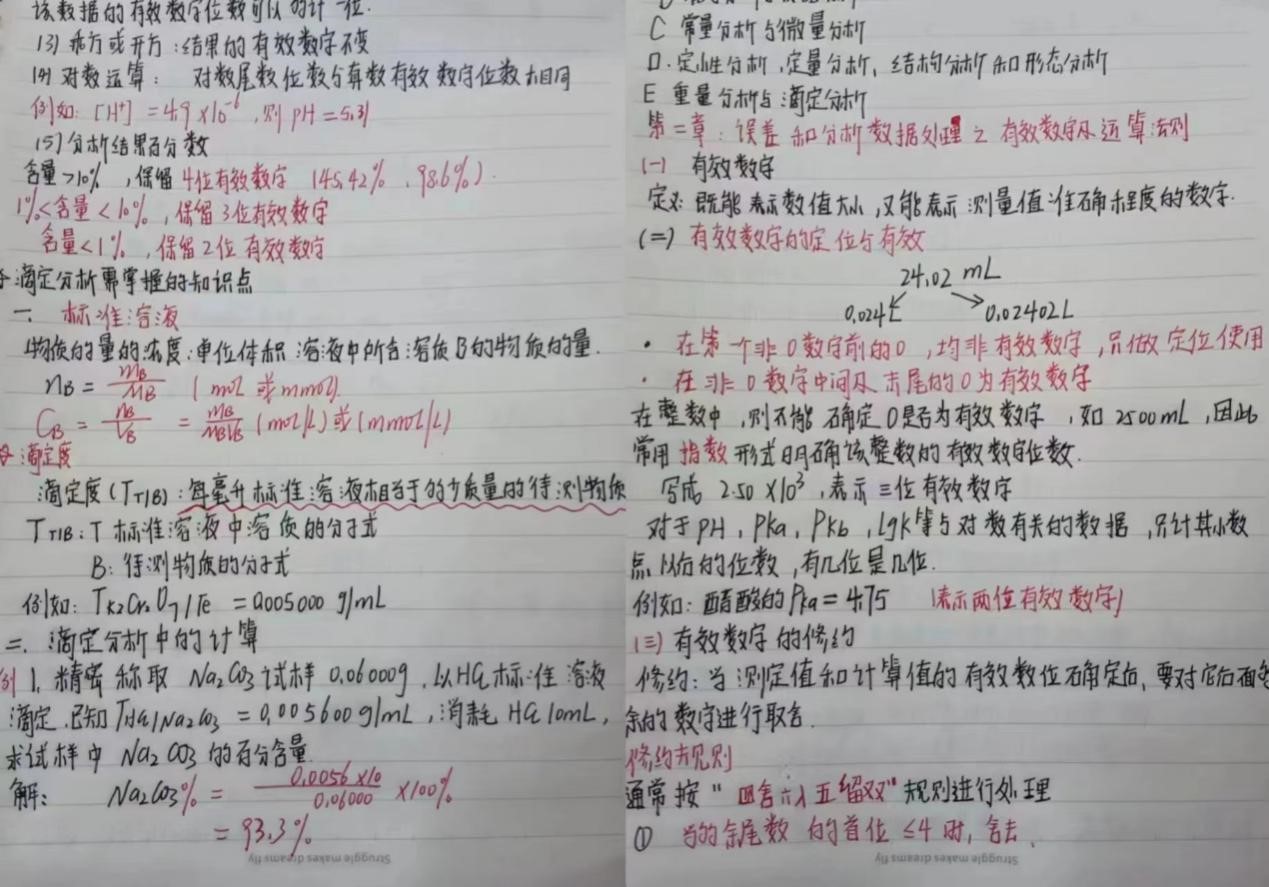 该数据的有效数字位数可以多计一位.
(3) 乘方或开方:结果的有效数字不变
(4) 对数运算: 对数尾数位数与真数有效数字位数相同
例如:[H⁺]=4.9×10⁻⁶,则pH=5.31
(5) 分析结果百分数
含量>10%,保留4位有效数字 (45.42%、98.6%).
1%<含量<10%,保留3位有效数字
含量<1%,保留2位有效数字
滴定分析需掌握的知识点
一. 标准溶液
物质的量的浓度:单位体积溶液中所含溶质B的物质的量.
nB = mB/MB (mol或mmol).
CB = nB/VB = mB/MBVB (mol/L)或(mmol/L)
滴定度
滴定度(TT/B):每毫升标准溶液相当于的多少质量的待测物质
TT/B:T标准溶液中溶质的分子式
B:待测物质的分子式
例如:TK2Cr2O7/Fe =0.005000 g/mL
二. 滴定分析中的计算
例1.精密称取Na2CO3试样0.06000g,以HCl标准溶液
滴定,已知THCl/Na2CO3 =0.005600g/mL,消耗HCl 10mL,
求试样中Na2CO3的百分含量.
解: Na2CO3% = 0.0056×10/0.06000 ×100%
= 93.3%
Struggle makes dreams fly
C 常量分析与微量分析
D.定性分析,定量分析、结构分析和形态分析
E 重量分析与滴定分析
第二章:误差和分析数据处理之有效数字及运算法则
(一) 有效数字
定义:既能表示数值大小,又能表示测量值准确程度的数字.
(二) 有效数字的定位与有效
24.02 mL
0.024L 0.02402L
· 在第一个非0数字前的0,均非有效数字,只做定位使用
· 在非0数字中间及末尾的0为有效数字
在整数中,则不能确定0是否为有效数字,如2500mL,因此
常用指数形式明确该整数的有效数字位数.
写成2.50×10³,表示三位有效数字
对于PH,Pka,Pkb,lgk等与对数有关的数据,只计其小数
点以后的位数,有几位是几位.
例如:醋酸的Pka=4.75 (表示两位有效数字)
(三) 有效数字的修约
修约:当测定值和计算值的有效数位确定后,要对它后面多
余的数字进行取舍.
修约规则
通常按“四舍六入五留双”规则进行处理
① 当的余尾数的首位≤4时,舍去.
Struggle makes dreams fly